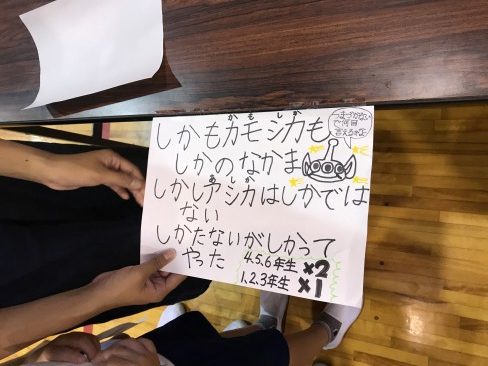 しかもカモシカも
かもしか
しかのなかま
しかしアシカはしかでは
あしか
ない
しかたないがしかって
やった
4.5.6年生 ×2
1.2.3年生 ×1
つまづかないで何回言えるかな